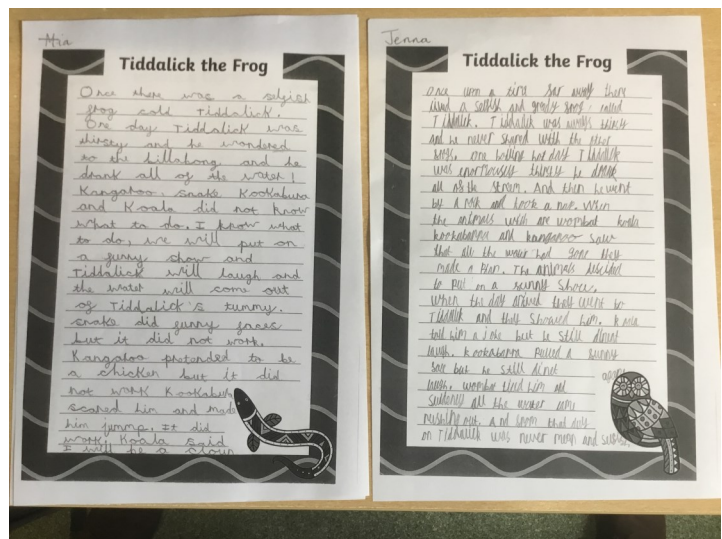 Mia
Tiddalick the Frog
Once there was a selfish
frog cald Tiddalick.
One day Tiddalick was
thirsty and he wandered
to the billabong and he
drank all of the water!
Kangaroo, snake Kookabura
and Koala did not know
what to do. I know what
to do, we will put on
a funny show and
Tiddalick will laugh and
the water will come out
of Tiddalick's tummy.
snake did funny faces
but it did not work.
Kangaroo pretended to be
a chicken but it did
not work Kookabura
scared him and made
him jump. It did
work. Koala said
I will be a clown
Jenna
Tiddalick the Frog
Once upon a time far away there
lived a selfish and greedy frog called
Tiddalick. Tiddalick was always thirsty
and he never shared with the other
frogs. One boiling hot day Tiddalick
was enormously thirsty he drank
all of the stream. And then he went
by a rock and took a nap. When
the animals wich are wombat koala
kookabarra and kangaroo saw
that all the water had gone they
made a plan. The animals decided
to put on a funny show.
When the day arived they went to
Tiddalick and they showed him. Koala
told him a joke but he still didnt
laugh. Kookabarra pulled a funny
face but he still didnt
laugh. wombat
suddenly all the water came
rushing out. And from that day
on Tiddalick was never mean and selfish
again